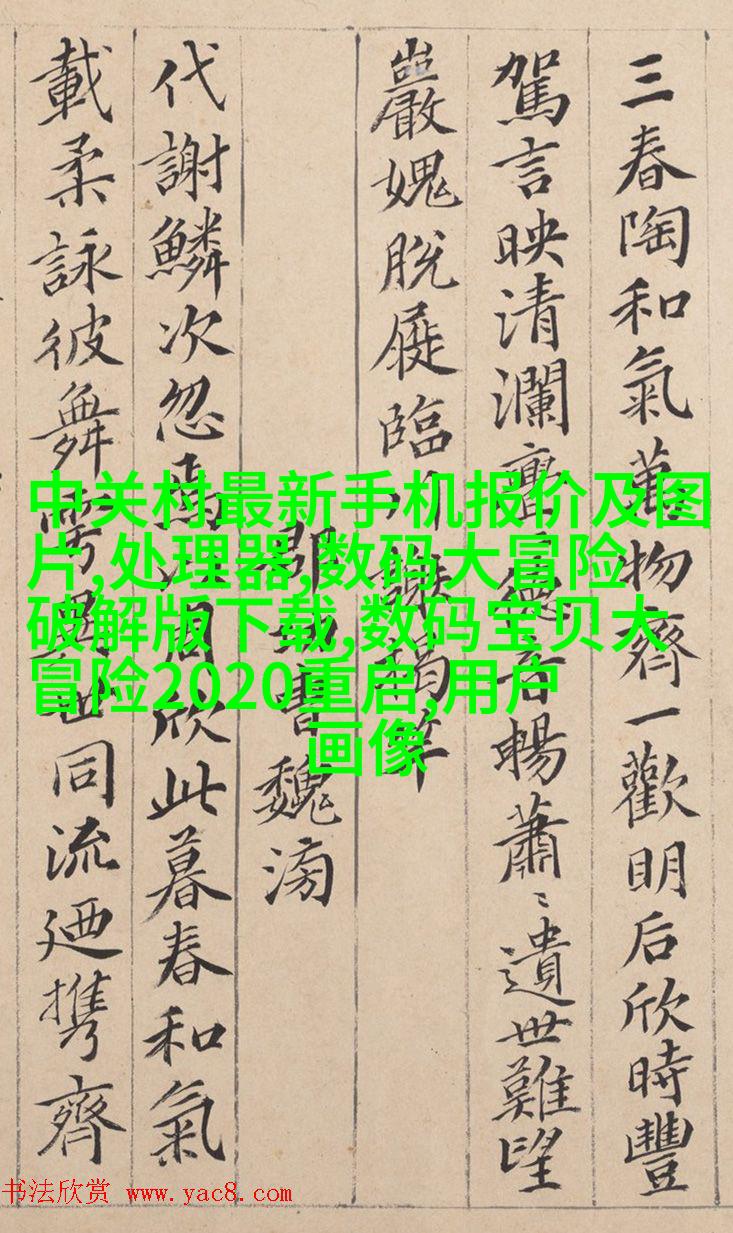 三春陶和氣萬物齊一歡明后欣時豐
駕言映清瀾亹〻德音暢蕭〻遺世難望
巖愧脫屣臨川謝揭竿
郡功曹魏滂
代謝鱗次忽焉以周欣此暮春和氣
載柔詠彼舞雩異世同流迺携齊
中关村最新手机报价及图
片,处理器,数码大冒险
破解版下载,数码宝贝大
冒险2020重启,用户
画像
书法欣赏 www.yac8.com